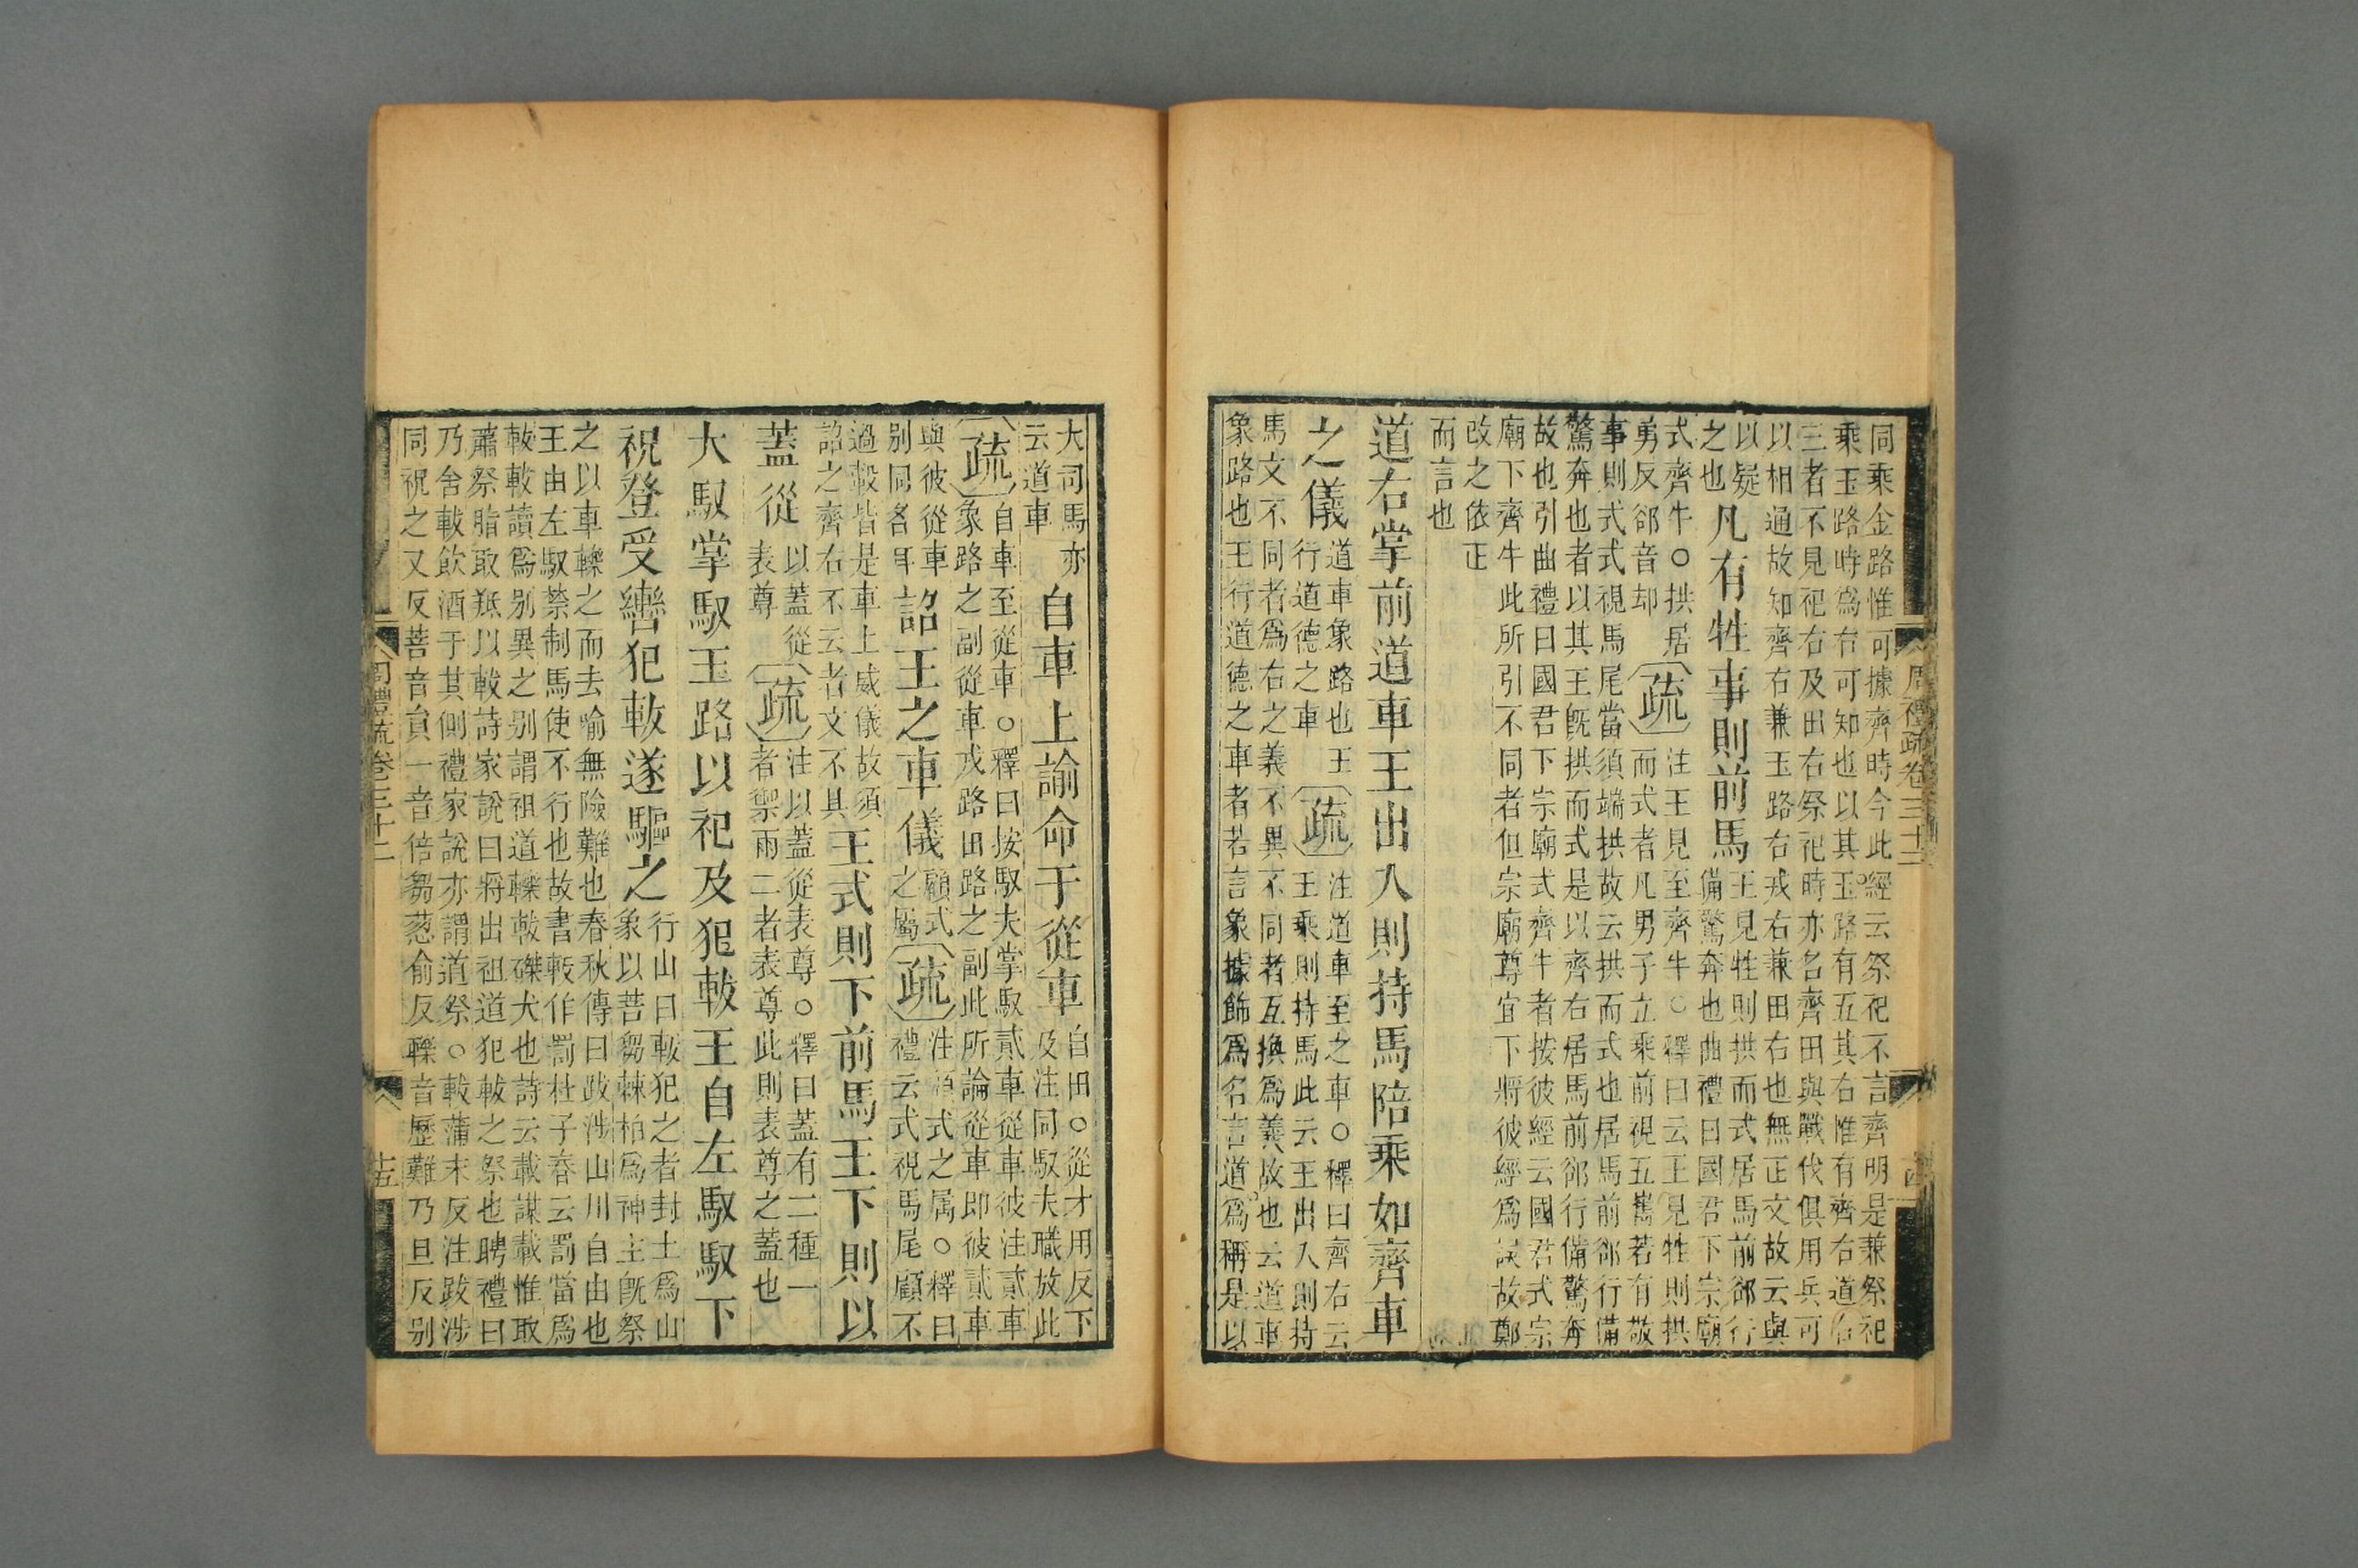 同乘金路惟可據齊時今此經云祭祀不言齊明是兼祭祀
乘玉路時為右可知也以其玉路有五其右惟有齊右道右
三者不見祀右及田右祭祀時亦名齊田與戰伐俱用兵可
以相通故知齊右兼玉路右戎右兼田右也無正文故云與
以疑
之也
凡有牲事則前馬
王見牲則拱而式居馬前卻行
備驚奔也曲禮曰國君下宗廟
式齊牛○拱居
勇反卻音却
疏
注王見至齊牛○釋曰云王見牲則拱
而式者凡男子立乘前視五巂若有敬
事則式式視馬尾當須端拱故云拱而式也居馬前卻行備
驚奔也者以其王既拱而式是以齊右居馬前卻行備驚奔
故也引曲禮曰國君下宗廟式齊牛者按彼經云國君式宗
廟下齊牛此所引不同者但宗廟尊宜下將彼經為誤故鄭
改之依正
而言也
道右掌前道車王出入則持馬陪乘如齊車
之儀
道車象路也王
行道德之車
疏
注道車至之車○釋曰齊右云
王乘則持馬此云王出入則持
馬文不同者為右之義不異不同者互換為義故也云道車
象路也王行道德之車者若言象據飾為名言道為稱是以
周禮疏卷三十二
大司馬亦
云道車
自車上諭命于從車
自由○從才用反下
及注同馭夫職放此
疏
自車至從車○釋曰按馭夫掌馭貳車從車彼注貳車
象路之副從車戎路田路之副此所論從車即彼貳車
與彼從車
别同名耳
詔王之車儀
顧式
之屬
疏
注顧式之属○釋曰
禮云式視馬尾顧不
過轂皆是車上威儀故須
詔之齊右不云者文不具
王式則下前馬王下則以
蓋從
以蓋從
表尊
疏
注以蓋從表尊○釋曰蓋有二種一
者禦雨二者表尊此則表尊之蓋也
大馭掌馭玉路以祀及犯軷王自左馭馭下
祝登受轡犯軷遂驅之
行山曰軷犯之者封土為山
象以菩芻棘柏為神主既祭
之以車轢之而去喻無險難也春秋傳曰跋涉山川自由也
王由左馭禁制馬使不行也故書軷作罰杜子春云罰當為
軷軷讀為别異之别謂祖道轢軷磔犬也詩云載謀載惟取
蕭祭脂取羝以軷詩家說曰將出祖道犯軷之祭也聘禮曰
乃舍軷飲酒于其側禮家說亦謂道祭○軷蒲末反注跋涉
同祝之又反菩音負一音倍芻葱俞反轢音歷難乃旦反别
周禮疏卷三十二
十五